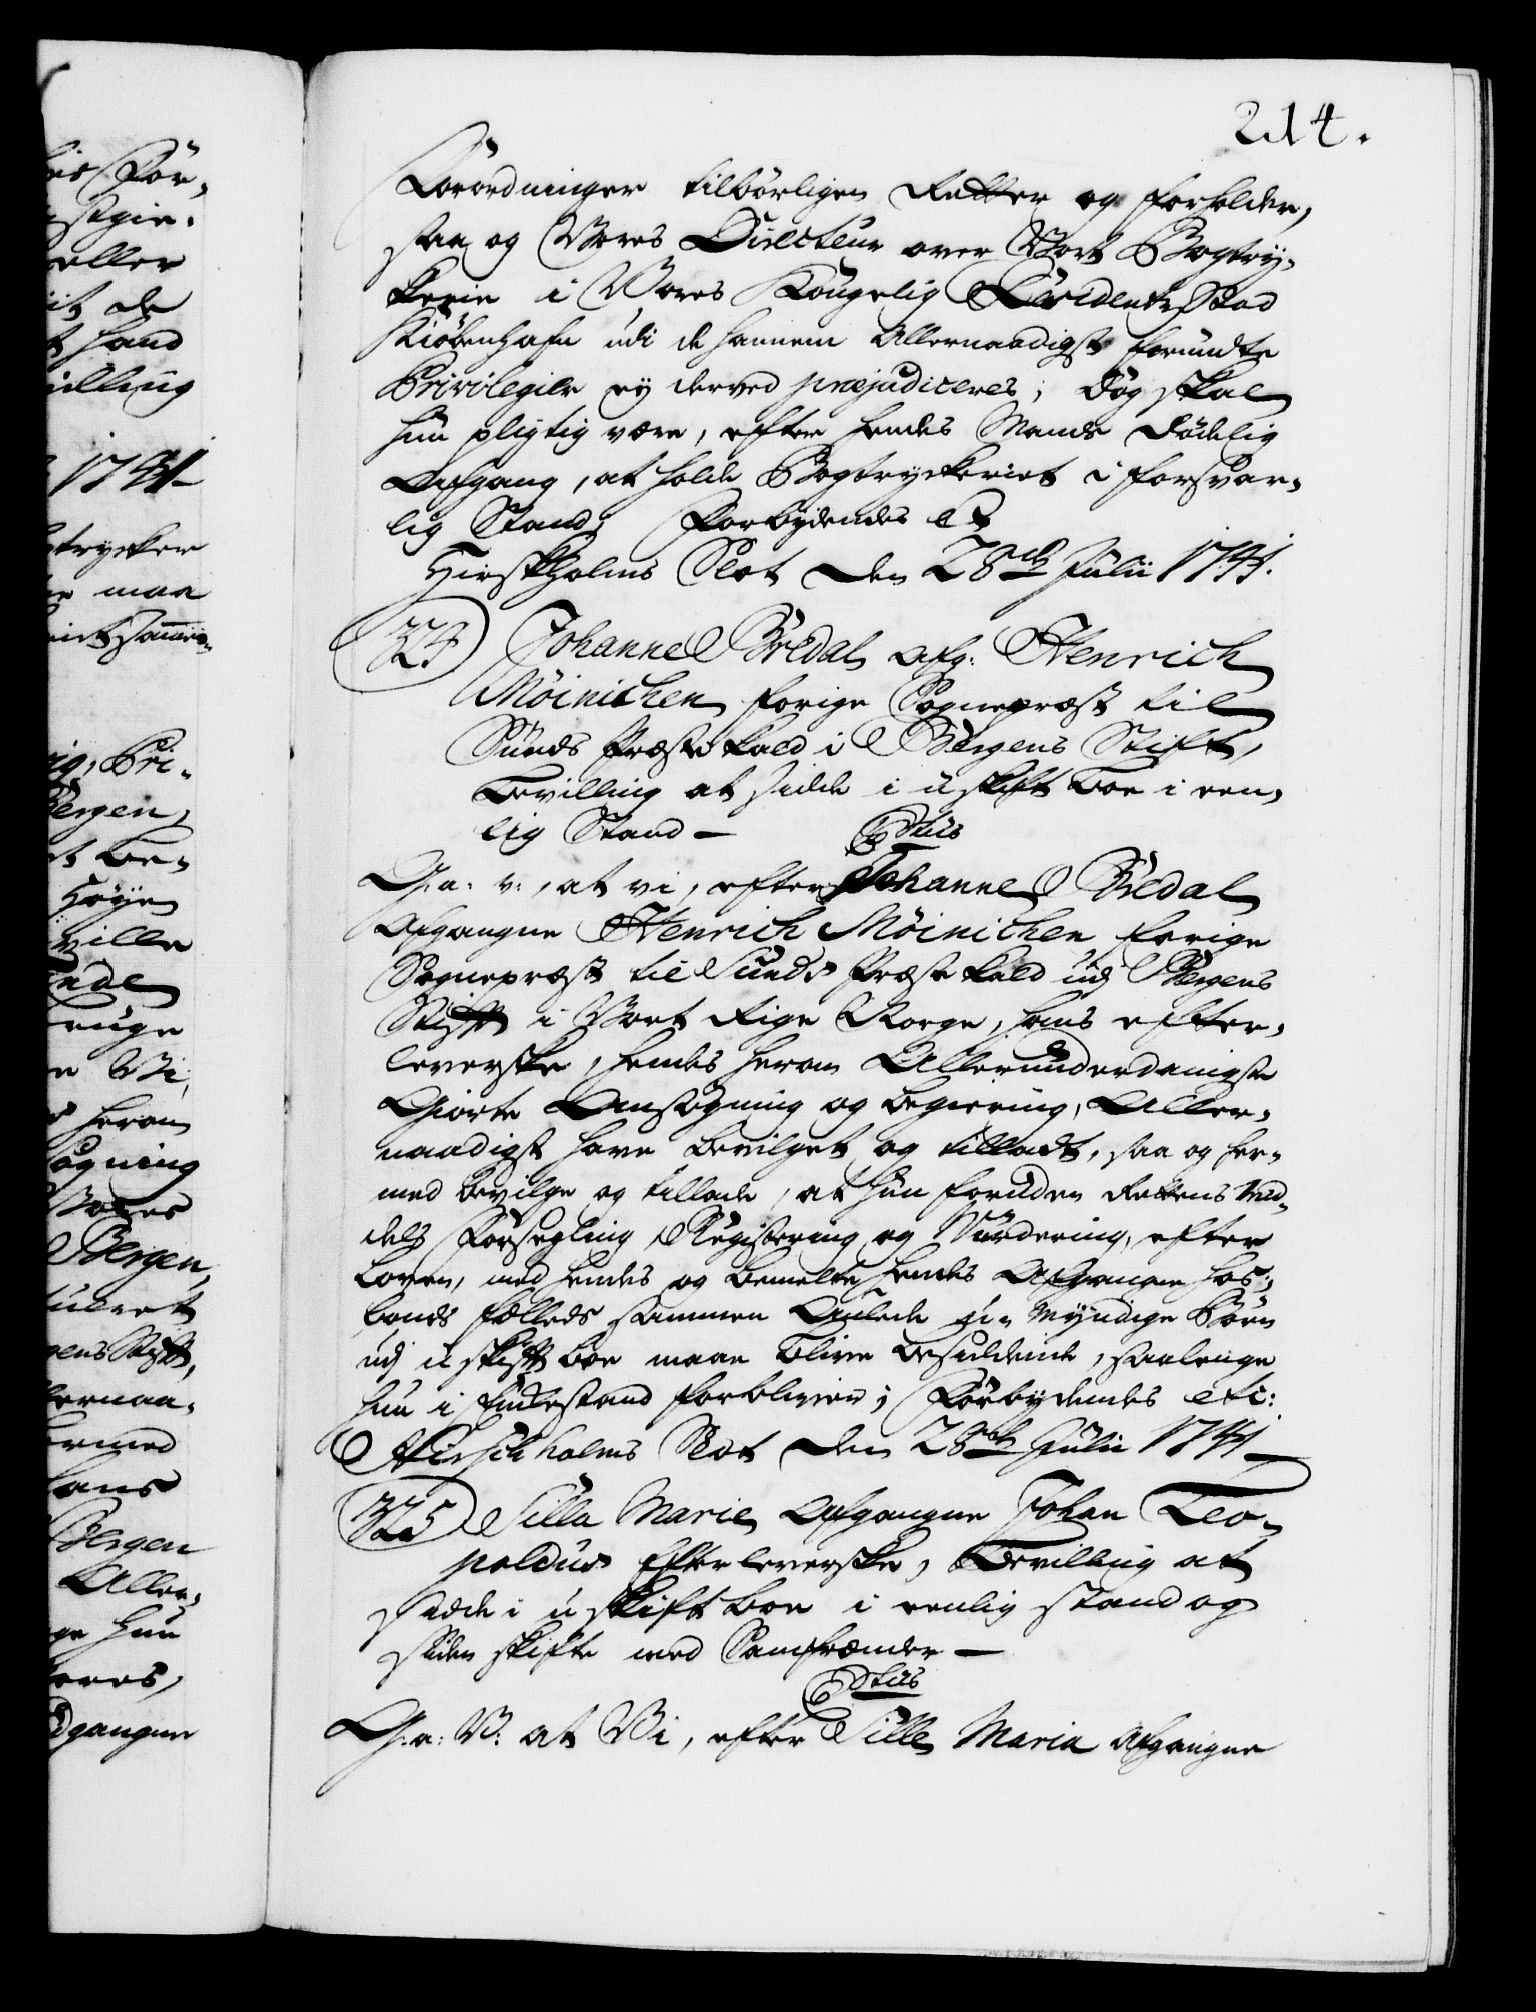 214.
Forordninger tilbørligen Retter og forholder,
saa og Vores Directeur over Vort Bogtry,
kerie i Vores Kongelig Residentz Stad
Kiøbenhafn udi de hannem Allernaadigst forundte
Privilegier ey derved præjudiceres; dog skal
hun pligtig være, efter hendes Mands dødelig
Afgang, at holde Bogtryckeriet i forsvar,
lig Stand; Forbydendes etc
Hirschholms Slot den 28de Julii 1741.
324 Johanne Bredal afg: Henrich
Møinichen forige Sognepræst til
Sunds Præste Kald i Bergens Stift,
Bevilling at sidde i uskift boe i een,
lig Stand —
G: a: v:, at vi, efter Johanne Bredal
Afgangne Henrich Møinichen forige
Sognepræst til Sunds Præste Kald udj Bergens
Stift i Vort Rige Norge, hans efter,
leverske, hendes herom Allerunderdanigste
Giorte Ansøgning og begiering, Aller,
naadigst have bevilget og tilladt, saa og her,
med bevilge og tillade, at hun foruden Rettens Mid,
dels Forsegling, Registering og Vurdering, efter
loven, med hendes og bemelte hendes Afgangne Hos,
bonds fælleds sammen Aulede u, Myndige Børn
udj uskift boe maae blive besiddende, saalenge
hun i Enkestand forbliver; Forbydendes etc:
Hirschholms Slot den 28de Julii 1741 —
325 Sille Marie Afgangne Johan Leo,
poldus Efterleverske, Bevilling at
sidde i uskift boe i eenlig stand og
siden skifte med Samfrænder —
G: a: V: at Vi, efter Sille Maria Afgangne